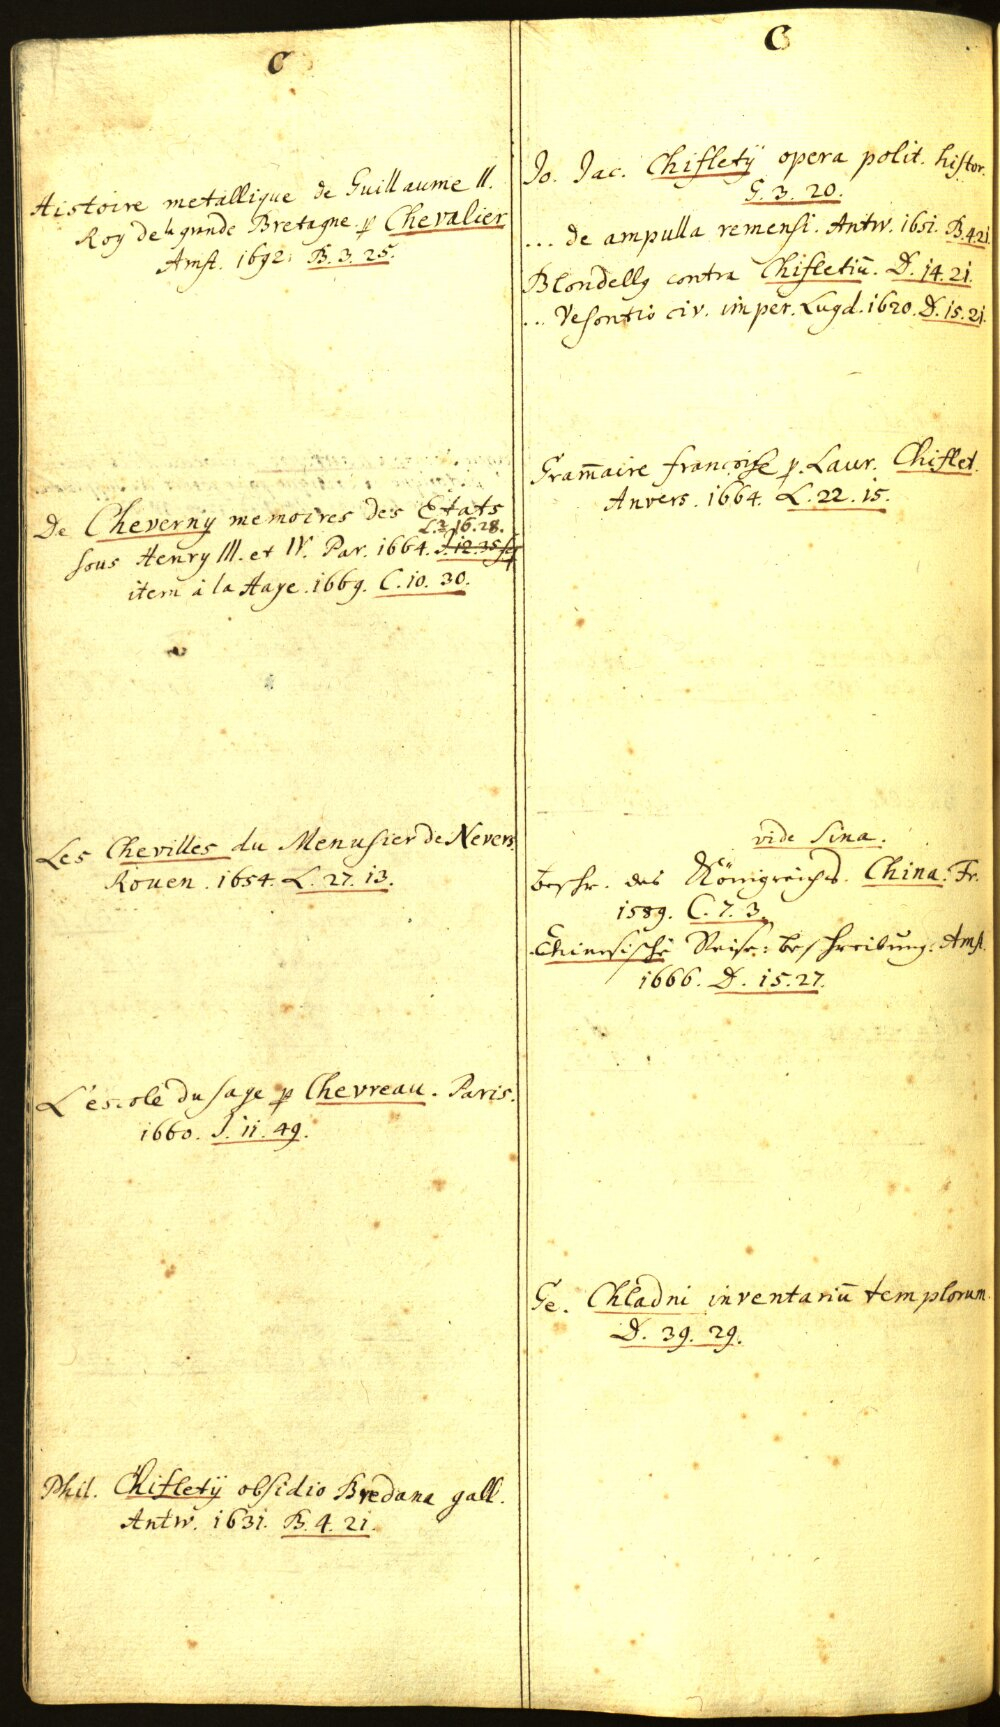 C
Histoire metallique de Guillaume II.
Roy de la grande Bretagne p Chevalier
Amst. 1692. B. 3. 25.
De Cheverny memoires des Etats
L. 3. 16. 28.
sous Henry III. et IV. Par. 1664. J. 12. 35 sq
item à la Haye. 1669. C. 10. 30.
Les Chevilles du Menusier de Nevers.
Rouen. 1654. L. 27. 13.
L'escole du sage p Chevreau. Paris.
1660. J. 11. 49.
Phil. Chifletÿ obsidio Bredana gall.
Antw. 1631. B. 4. 21.
C
Jo. Jac. Chifletÿ opera polit. histor.
G. 3. 20.
... de ampulla remensi. Antw. 1651. B. 4. 21.
Blondellg contra Chifletiū. D. 14. 21.
... Vesontio civ. imper. Lugd. 1620. D. 15. 21.
Gram̄aire françoise p. Laur. Chiflet.
Anvers. 1664. L. 22. 15.
vide Sina.
beschr. des Königreichs. China. Fr.
1589. C. 7. 3.
Chinesische Reise: beschreibung. Amst.
1666. D. 15. 27.
Ge. Chladni inventariū templorum.
D. 39. 29.